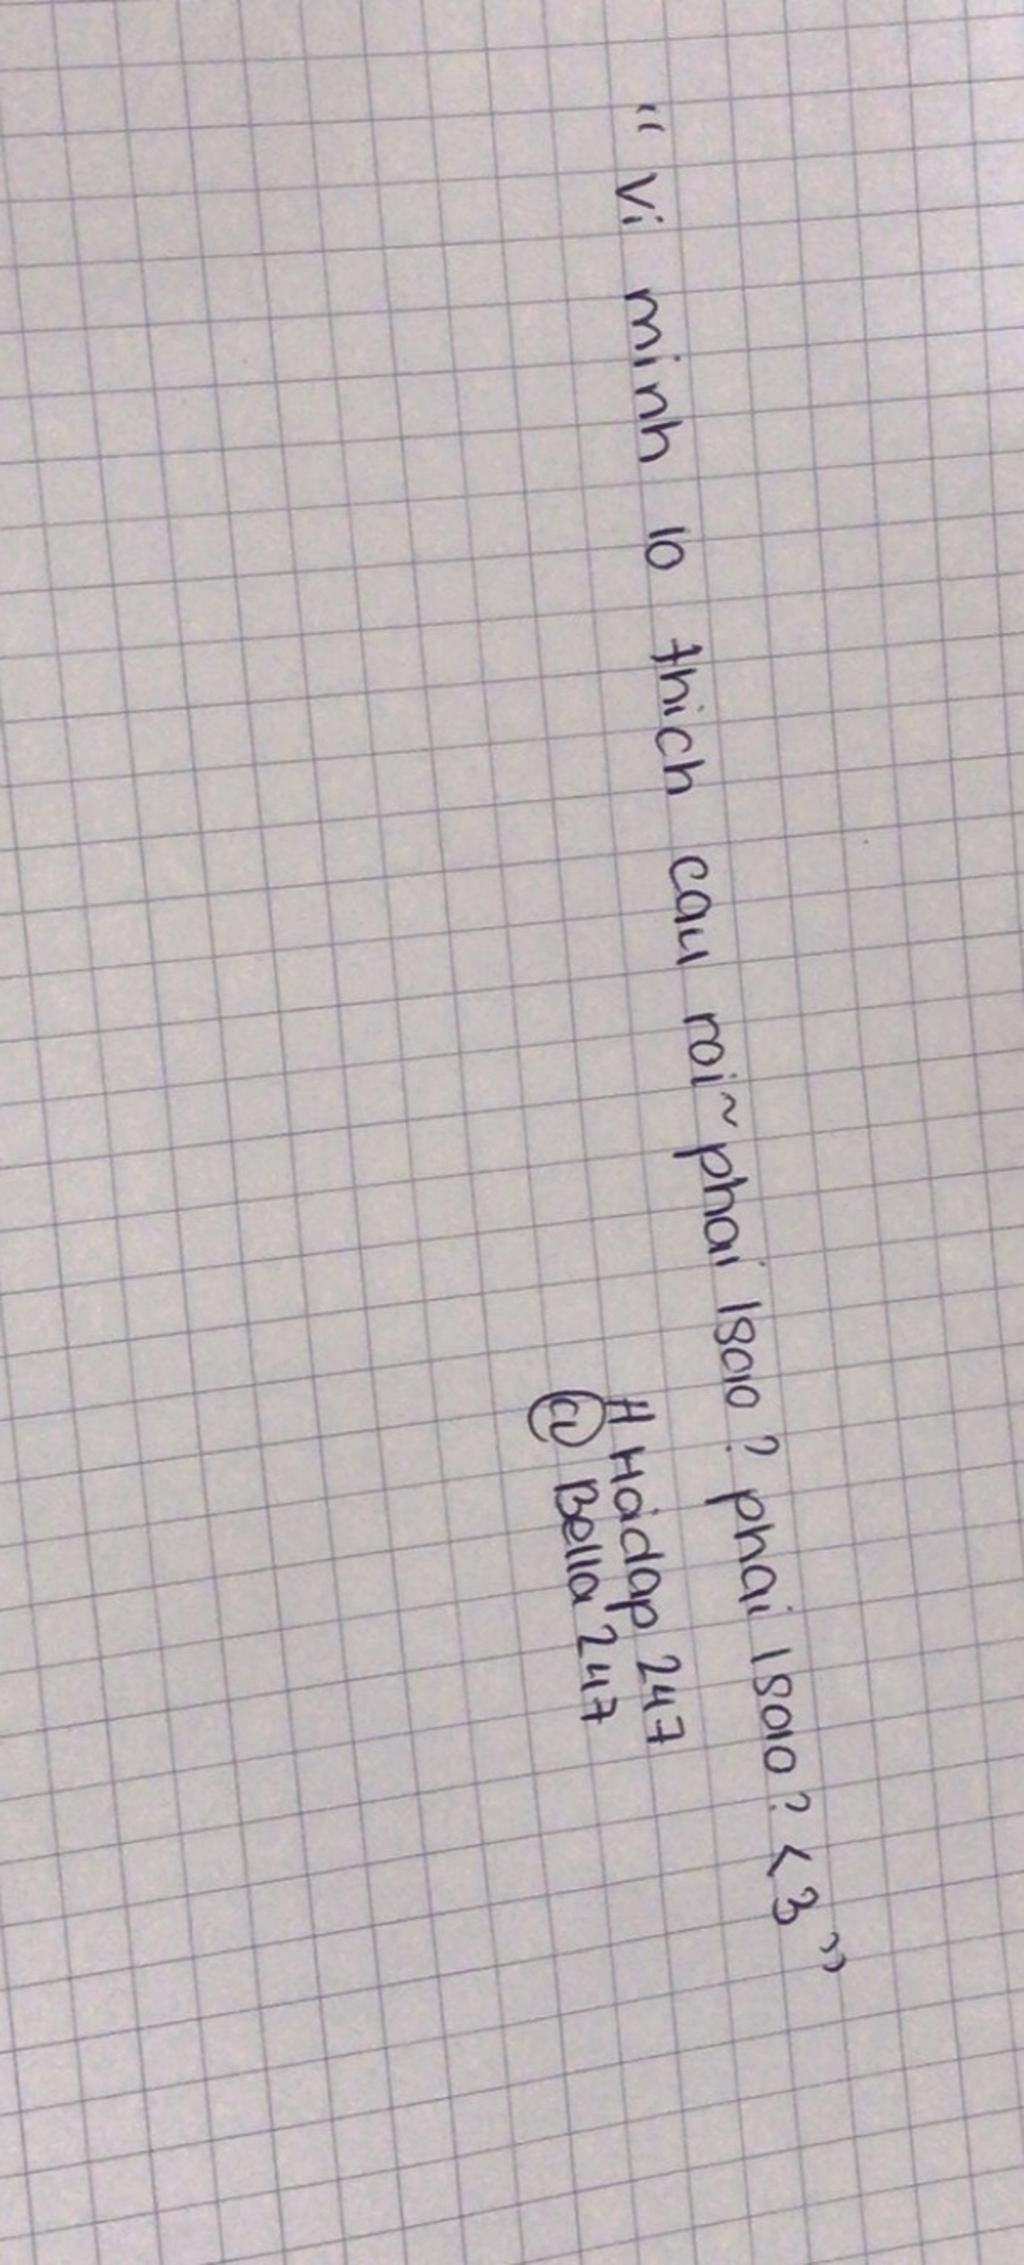 " Vi minh lo thich cau roi ~ phai lsao ? phai lsao ? <3 "
# Hádap 247
@ Bella 247